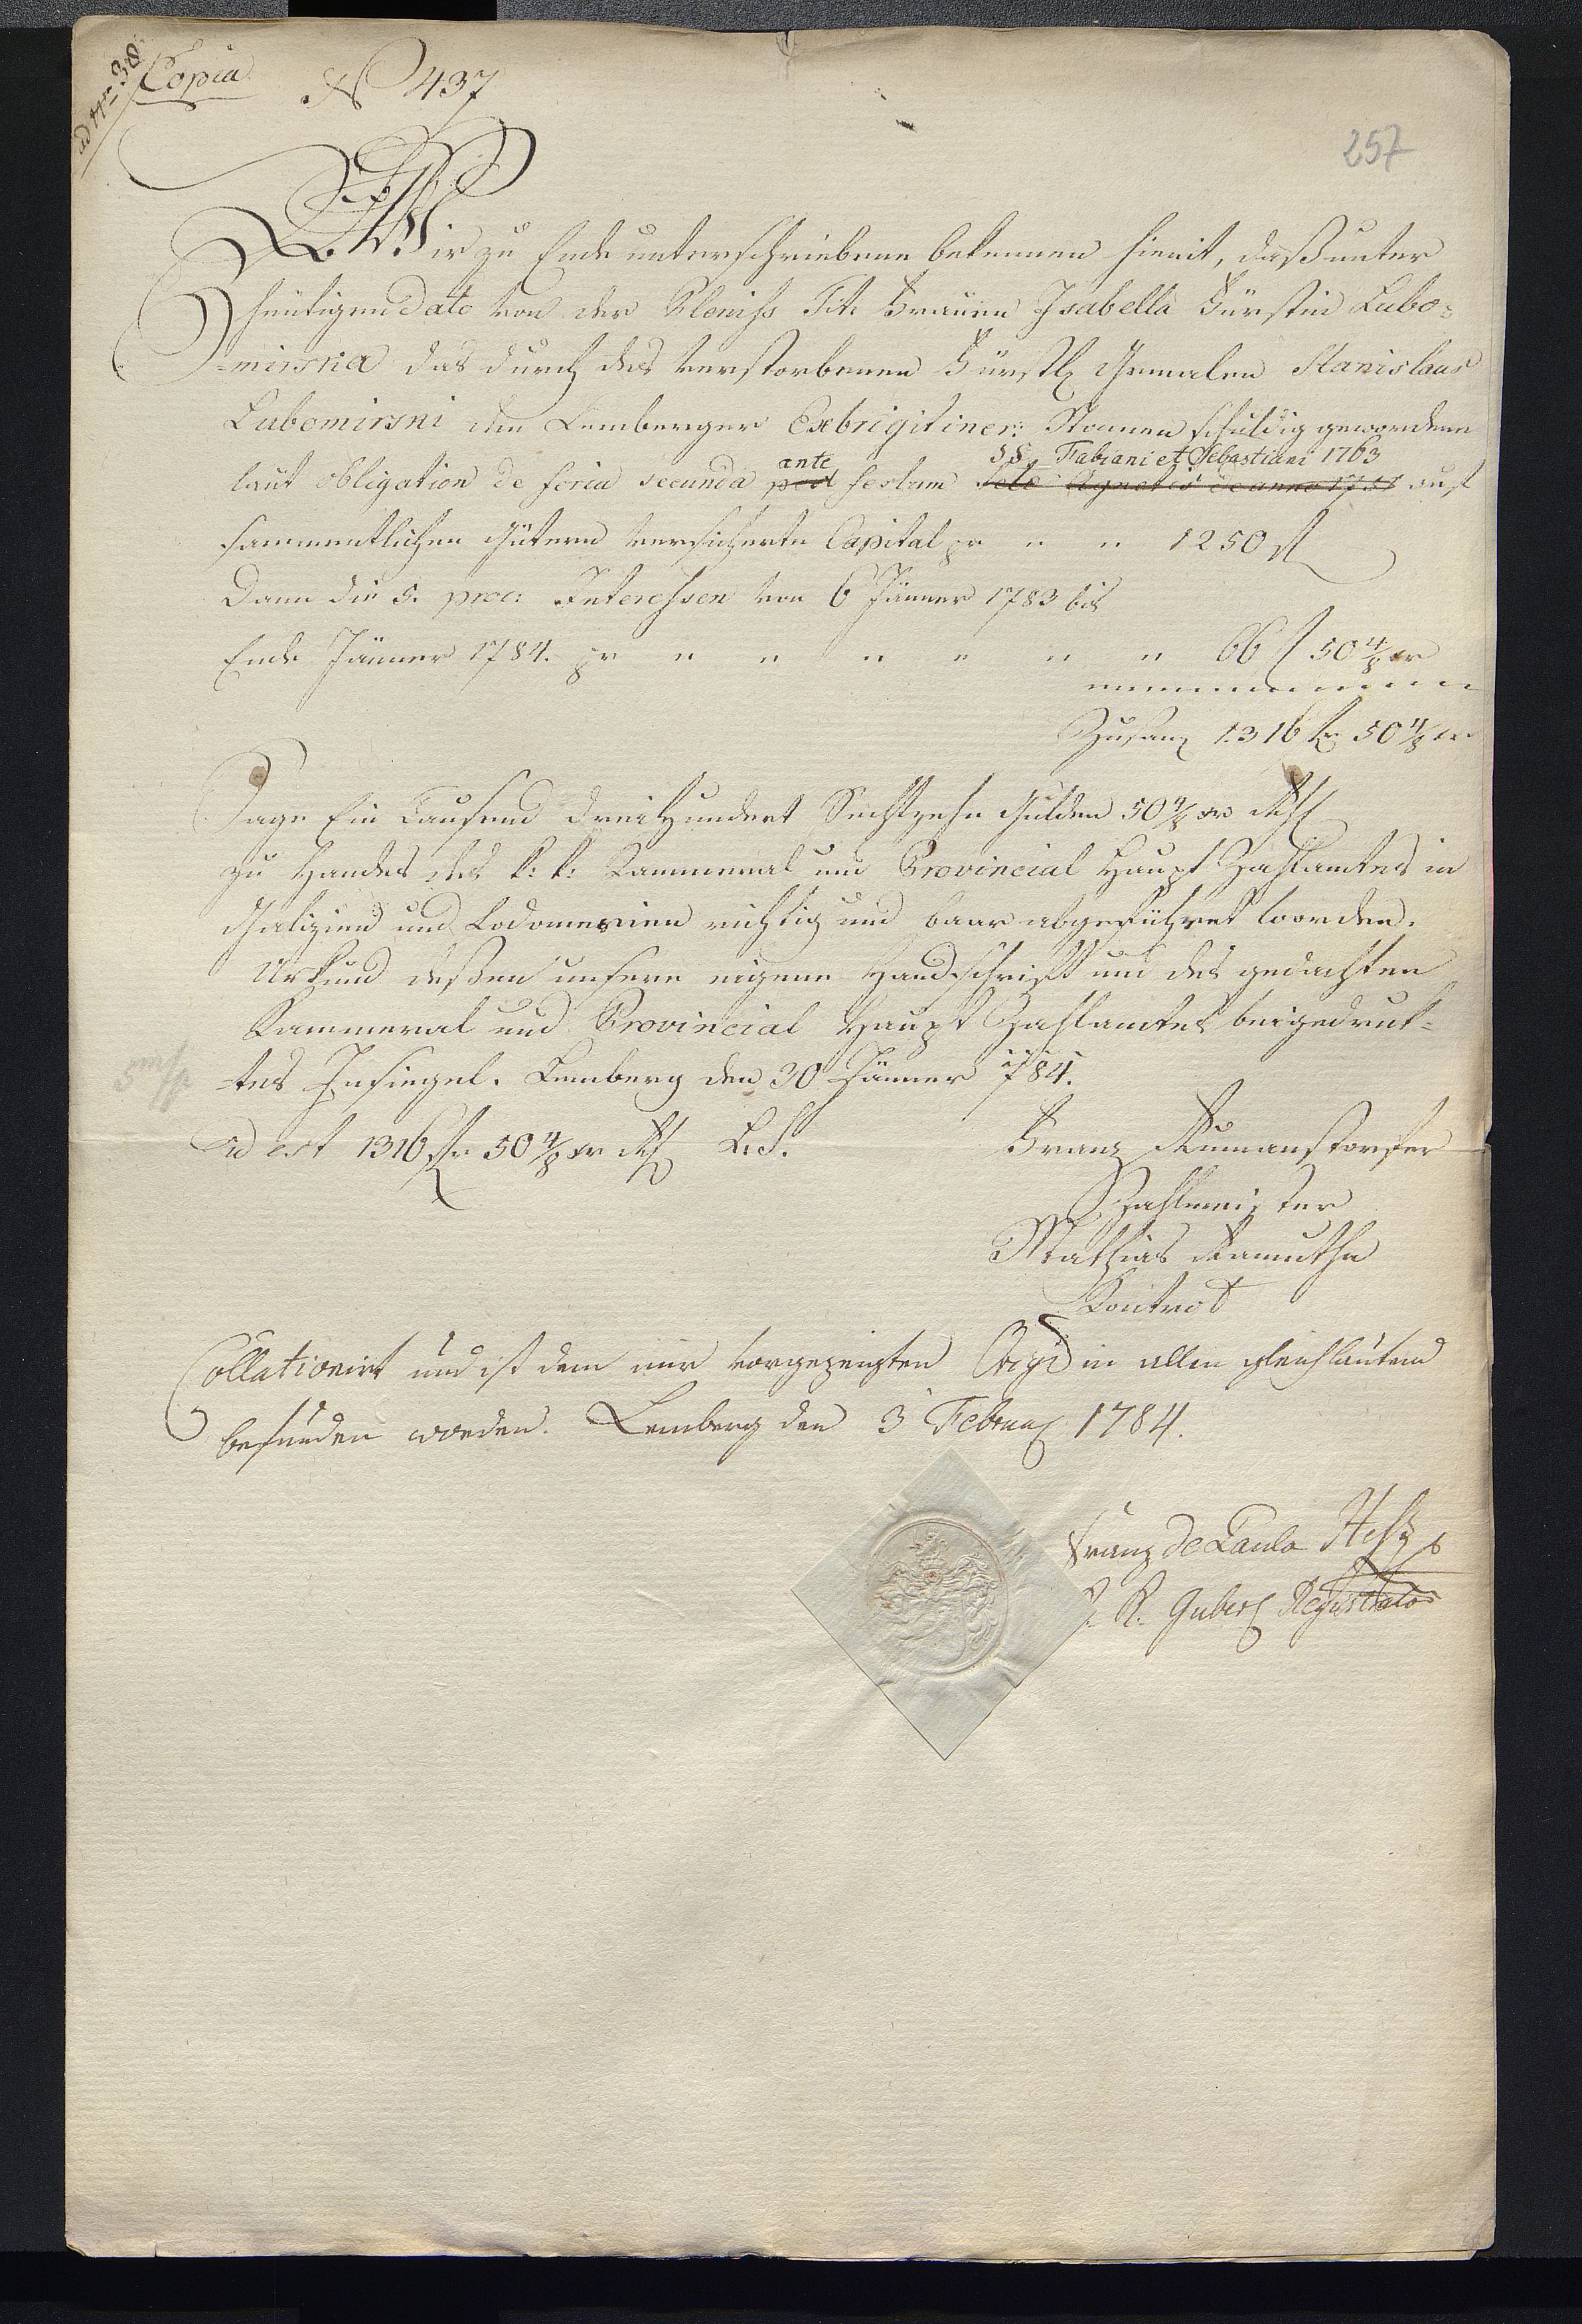 ad Nrm 38
Copia
No 437
257
Wir zu Ende unterschriebene bekennen hiemit, daß unter
heutigen Dato von der Pleniss Tit: Frauen Isabella Fürstin Lubo=
=mirska das durch des verstorbenen Fürstl Gemalen Stanislaus
Lubomirski den Lemberger Exbrigitiner: Nonnen schuldig gewordene
ante SS. Fabiani et Sebastiani 1763
laut obligation de feria secunda post festum Agnetis de anno auf
sammentlichen Gütern versicherte Capital pr " " 1250 fl
Dann die 5. proc: Interessen von 6 Jänner 1783 bis
Ende Jänner 1784. pr " " " " " " 66 f 50 4/8 xr
Zusam 1316 fr 50 4/8 xr
Sage Ein Tausend Dreihundert Sechszehn Gulden 50 4/8 xr
zu Handen des k: k: Kammeral und Provincial Haupt Zahlamtes in
Galizien und Lodomerien richtig und baar abgeführet worden.
Urkund dessen unsere eigene Handschrift und des gedachten
Kammeral und Provincial Haupt Zahlamtes beigedruk=
=tes Insiegel. Lemberg den 30 Jänner 784.
id est 1316 fr 50 4/8 xr L: S.
Franz Aumanstorfer
Zahlmeister
Mathias
Control
Collationirt und ist dem mir vorgezeigten Orig in allen gleichlautend
befunden worden. Lemberg den 3 Februar 1784.
Franz de Paula Hess
K. Guber Registrator